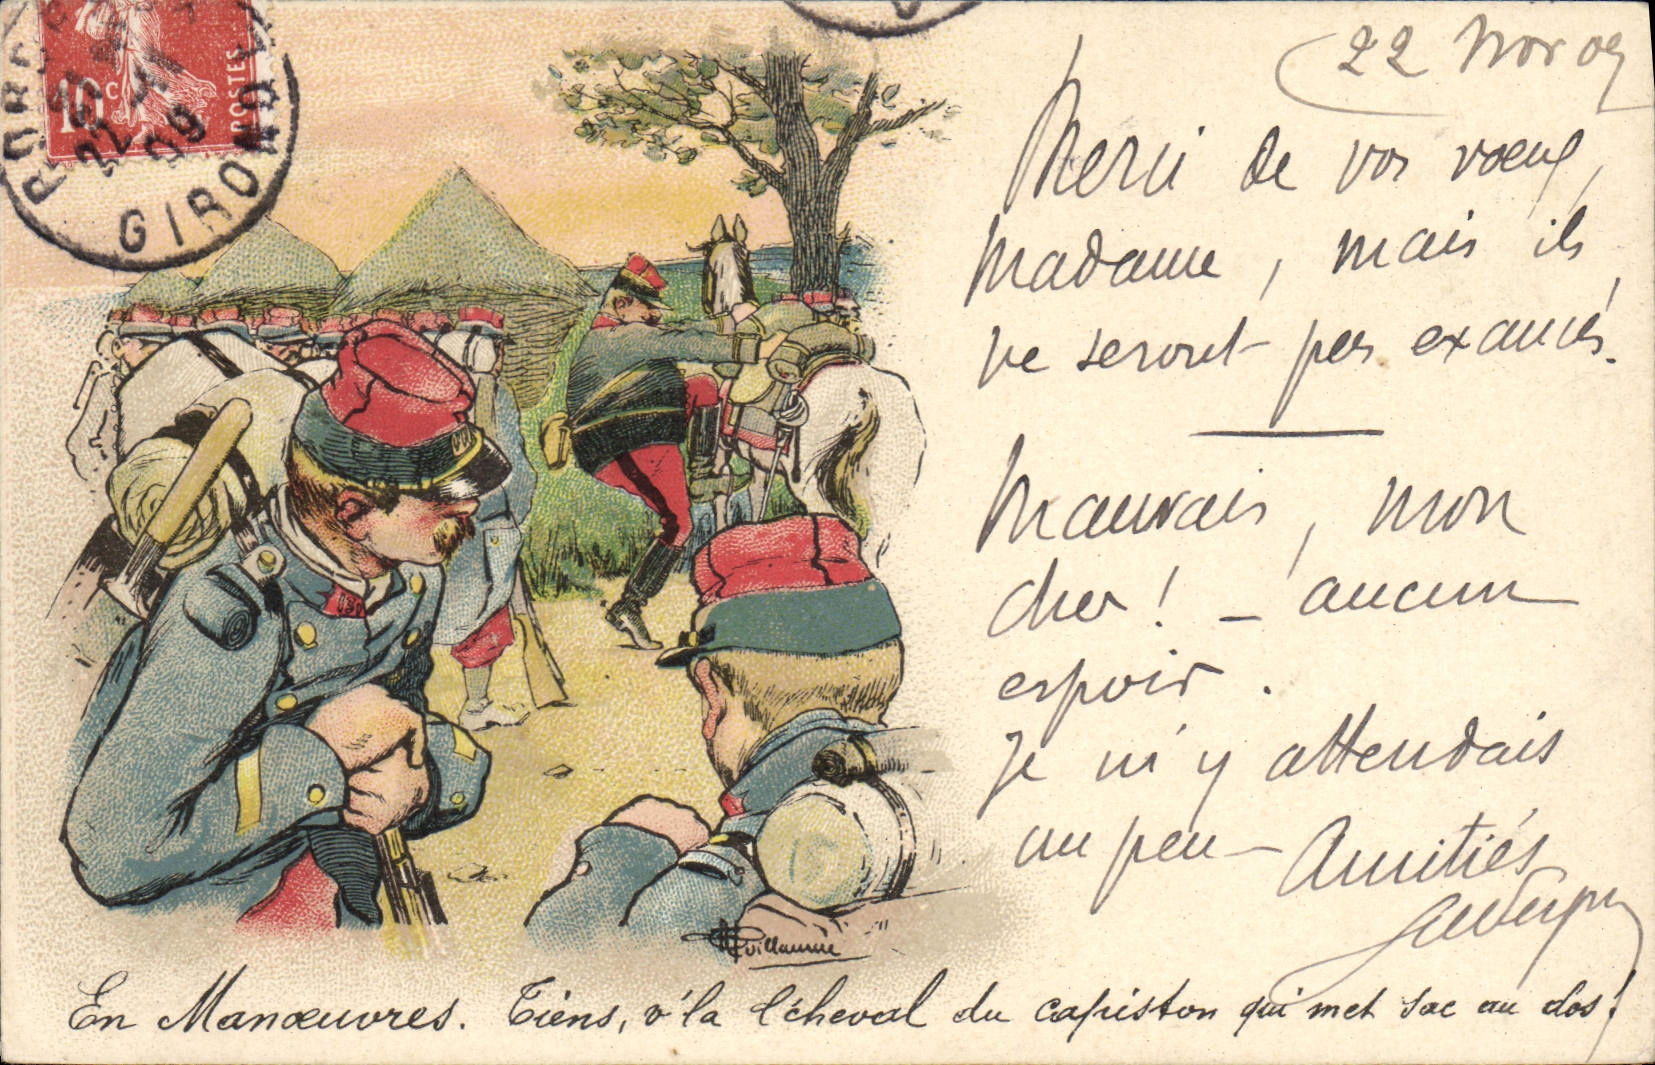 10c
POSTES
BORDEAUX
22 - 11
09
GIRONDE
22 Nov 09
Merci de vos vœux,
Madame, mais ils
ne seront pas exaucés.
Mauvais, mon
cher ! – aucun
espoir.
Je m'y attendais
un peu – Amitiés
A Guillaume
En Manœuvres. Tiens, v'la l'cheval du capiston qui met sac au dos!